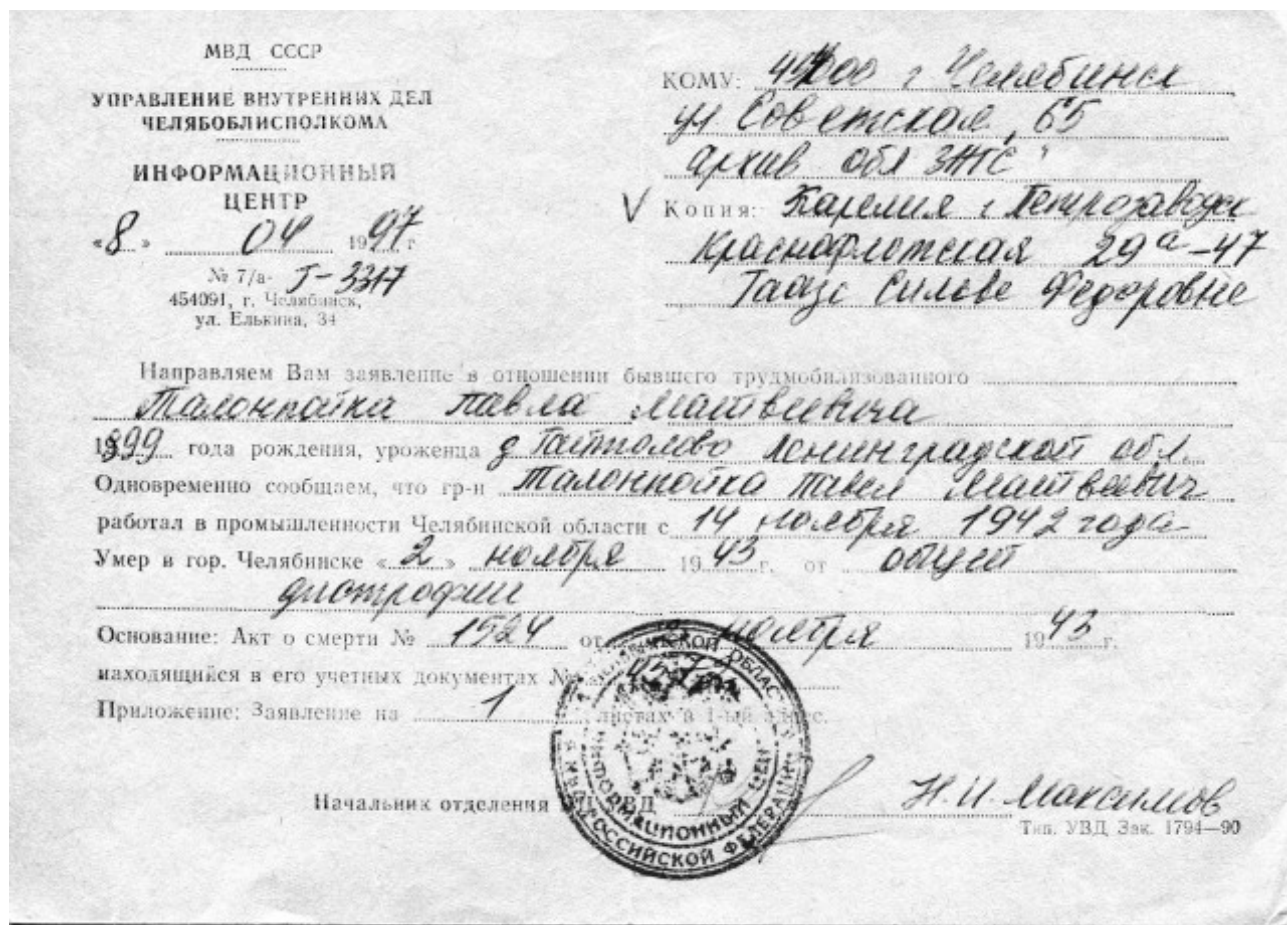 МВД СССР
УПРАВЛЕНИЕ ВНУТРЕННИХ ДЕЛ
ЧЕЛЯБОБЛИСПОЛКОМА
ИНФОРМАЦИОННЫЙ
ЦЕНТР
«8» 04 1997 г.
№ 7/а- Т-3317
454091, г. Челябинск,
ул. Елькина, 34
КОМУ: г Челябинск
ул Советская, 65
архив обл ЗАГС
V Копия: Карелия г Петрозаводск
Краснофлотская 29а-47
Сильве Федоровне
Направляем Вам заявление в отношении бывшего трудмобилизованного
Талонпойка Павла Матвеевича
1899 года рождения, уроженца д Гайтолово Ленинградской обл.
Одновременно сообщаем, что гр-н Талонпойка Павел Матвеевич
работал в промышленности Челябинской области с 14 ноября 1942 года
Умер в гор. Челябинске «2» ноября 1943 г. от общей
дистрофии
Основание: Акт о смерти № 1524 от ноября 1943 г.
находящийся в его учетных документах №
Приложение: Заявление на 1 листах в 1-ый адрес.
Начальник отделения УВД
Н.И. Максимов
Тип. УВД Зак. 1794—90
ИНФОРМАЦИОННЫЙ ЦЕНТР
РОССИЙСКОЙ ФЕДЕРАЦИИ